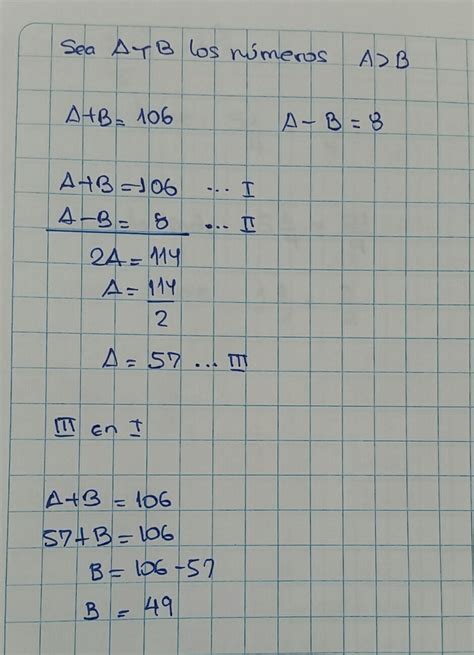 Sea A y B los números A>B
A+B= 106 A-B=8
A+B=106 ... I
A-B= 8 ... II
2A=114
A=114/2
A=57 ... III
III en I
A+B=106
57+B=106
B=106-57
B=49